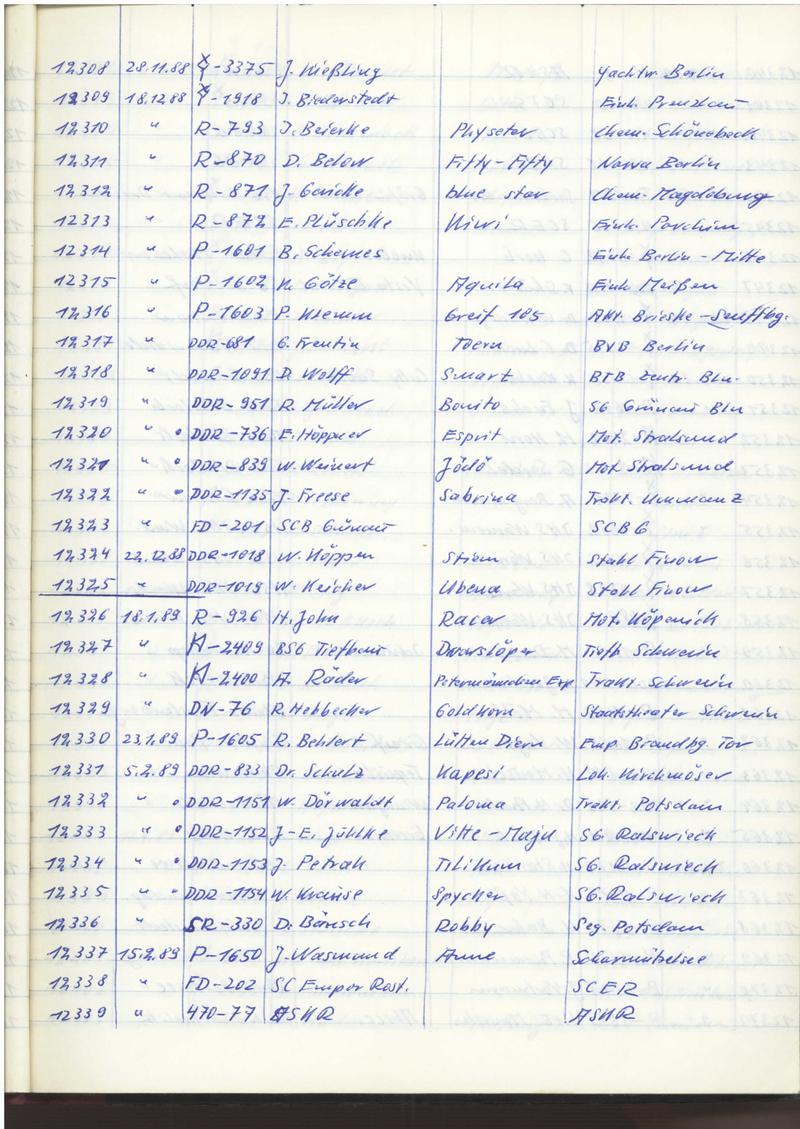 12308 28.11.88 Y-3375 J. Kießling Yachtw. Berlin
12309 18.12.88 Y-1918 J. Biederstedt Einh. Prenzlau
12310 " R-793 J. Beierke Physeter Chem. Schönebeck
12311 " R-870 D. Below Fifty-Fifty Narva Berlin
12312 " R-871 J. Gericke blue star Chem. Magdeburg
12313 " R-872 E. Plüschke Kiwi Einh. Parchim
12314 " P-1601 B. Schemes Einh. Berlin-Mitte
12315 " P-1602 K. Götze Aquila Einh. Meißen
12316 " P-1603 P. Klemm Greif 105 Akt. Brieske-Senftbg.
12317 " DDR-681 G. Frentin Toern BVB Berlin
12318 " DDR-1091 D. Wolff Smart BTB Zentr. Bln.
12319 " DDR-951 R. Müller Bonito SG Grünau Bln
12320 " DDR-736 E. Höppner Esprit Mot. Stralsund
12321 " DDR-839 W. Weinert Jödö Mot. Stralsund
12322 " DDR-1135 J. Freese Sabrina Trakt. Ummanz
12323 " FD-201 SCB Grünau SCBG
12324 22.12.88 DDR-1018 W. Köppen Sturm Stahl Finow
12325 " DDR-1019 W. Keicher Ubena Stahl Finow
12326 18.1.89 R-926 H. John Racer Mot. Köpenick
12327 " H-2409 BSG Tiefbau Dwarslöper Tiefb. Schwerin
12328 " H-2400 A. Räder Petermännchen Exp. Trakt. Schwerin
12329 " DN-76 R. Hebbecker Goldkorn Staatstheater Schwerin
12330 23.1.89 P-1605 R. Behlert Lütten Diern Emp. Brandbg. Tor
12331 5.2.89 DDR-833 Dr. Schulz Kapesi Lok. Kirchmöser
12332 " DDR-1151 W. Dörwaldt Paloma Trakt. Potsdam
12333 " DDR-1152 J-E. Jühlke Vitte-Majn SG. Ralswieck
12334 " DDR-1153 J. Petrak Tilikum SG. Ralswieck
12335 " DDR-1154 W. Krause Spycher SG. Ralswieck
12336 " SR-330 D. Bänsch Robby Seg. Potsdam
12337 15.2.89 P-1650 J. Wasmund Anne Scharmützelsee
12338 " FD-202 SC Empor Rost. SCER
12339 " 470-77 ASKR ASKR